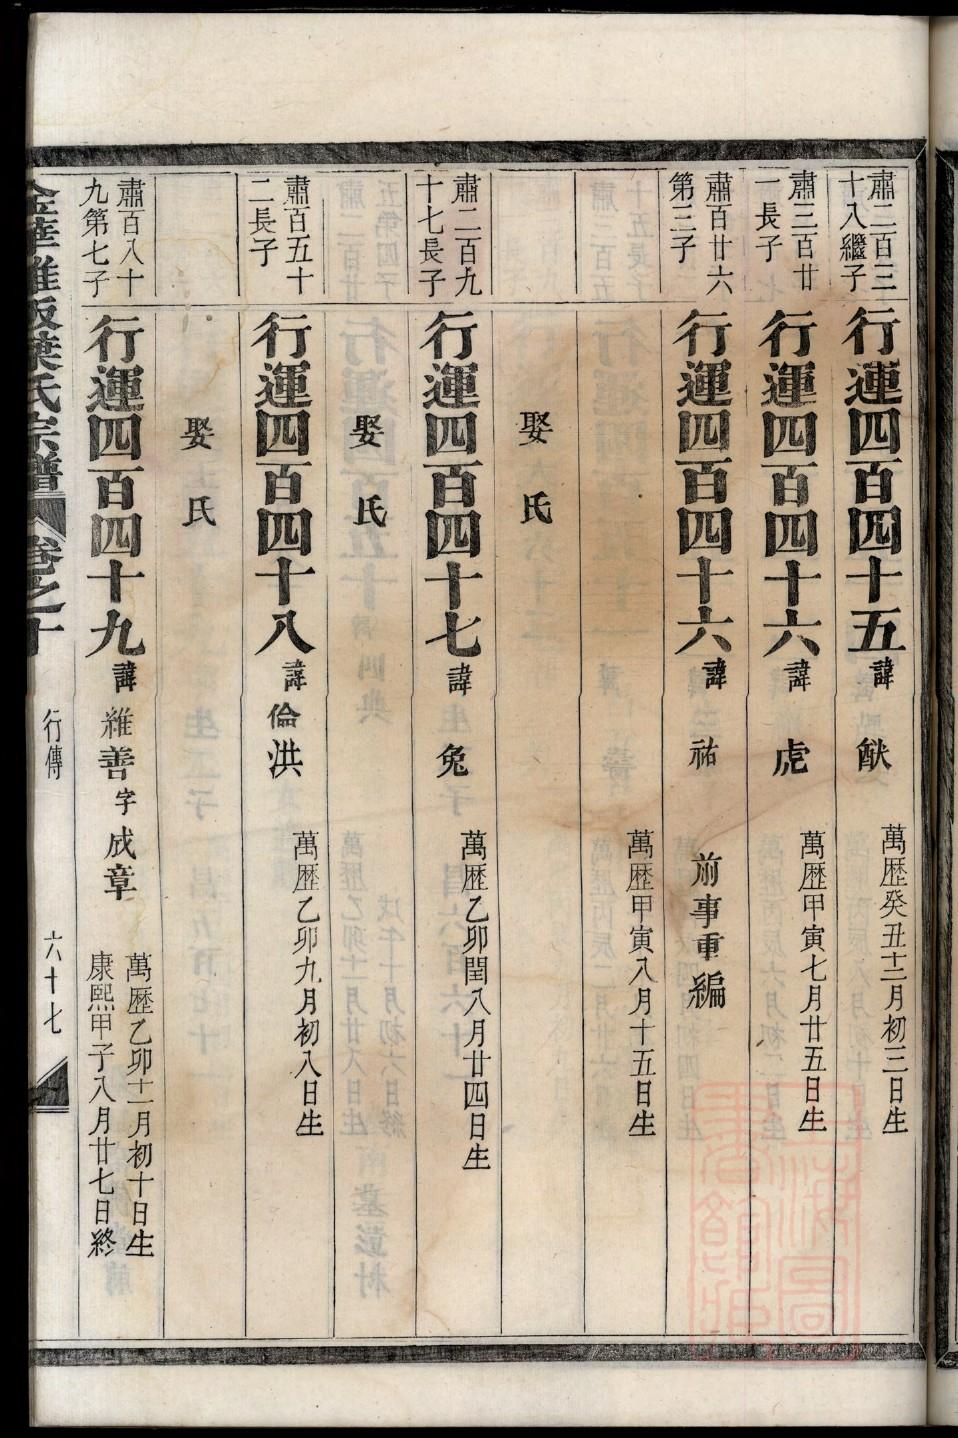 肅二百三
十八繼子
行運四百四十五諱猷
萬歷癸丑十二月初三日生
肅三百廿
一長子
行運四百四十六諱虎
萬歷甲寅七月廿五日生
肅百廿六
第三子
行運四百四十六諱祐
前事重編
萬歷甲寅八月十五日生
娶氏
肅二百九
十七長子
行運四百四十七諱兔
萬歷乙卯閏八月廿四日生
娶氏
肅百五十
二長子
行運四百四十八諱倫洪
萬歷乙卯九月初八日生
娶氏
肅百八十
九第七子
行運四百四十九諱維善字成章
萬歷乙卯十一月初十日生
康熙甲子八月廿七日終
金華雅畈葉氏宗譜
卷之十
行傳
六十七